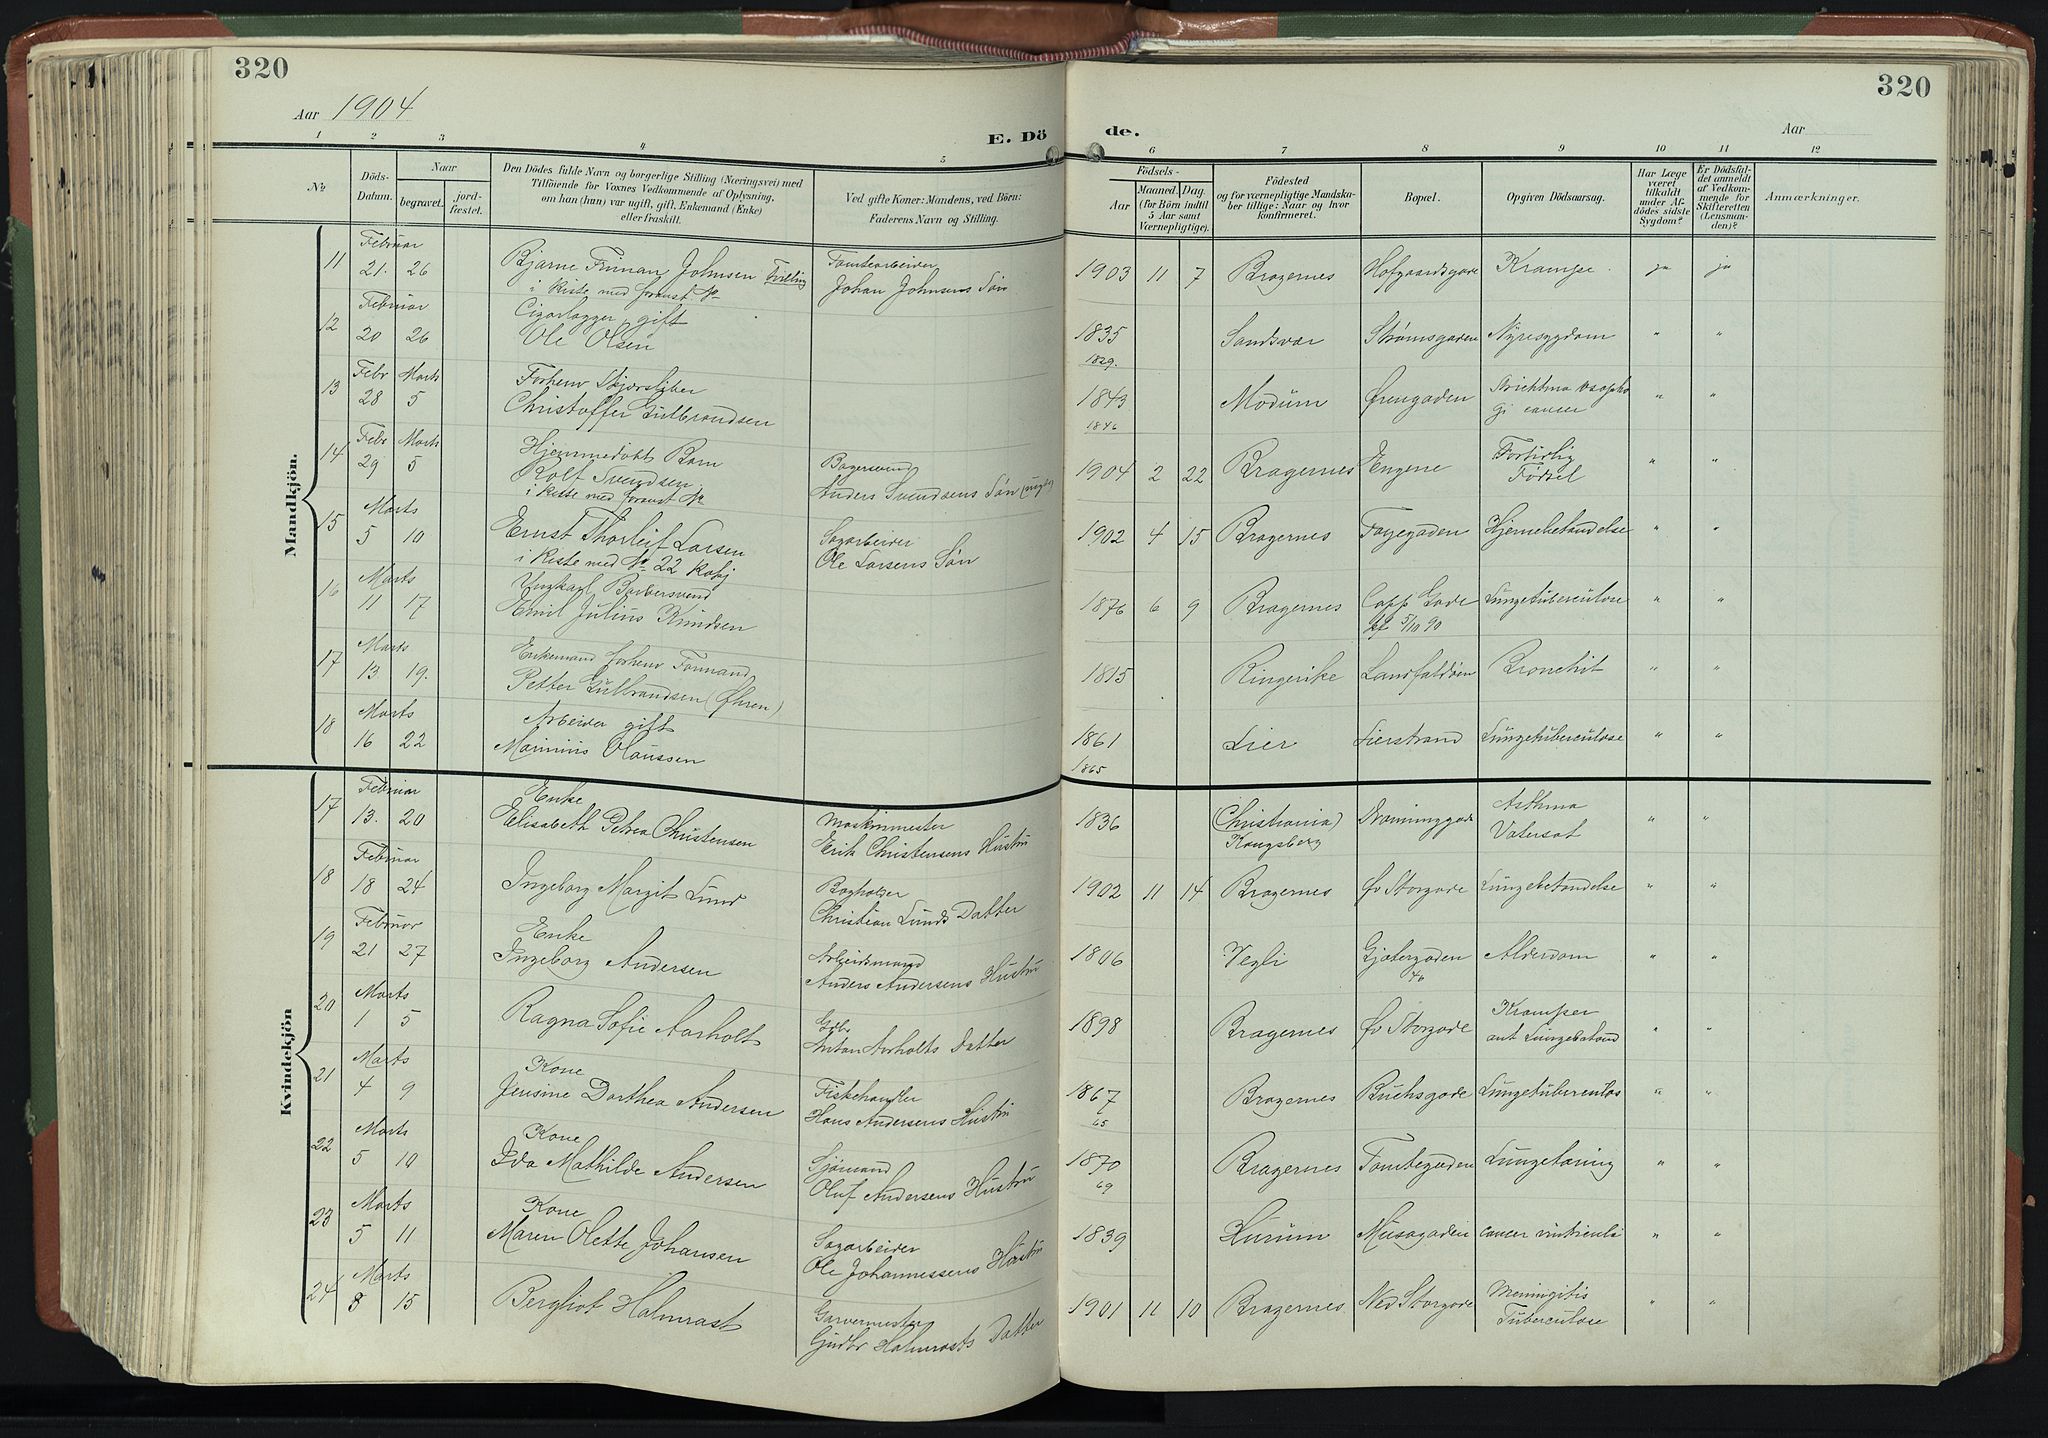 320
320
Aar 1904
Aar
E. Döde.
1 2 3 4 5 6 7 8 9 10 11 12
No
Döds-Datum.
Naar
begravet.
jord-fæstet.
Den Dödes fulde Navn og borgerlige Stilling (Næringsvei) med
Tilföiende for Voxnes Vedkommende af Oplysning,
om han (hun) var ugift, gift, Enkemand (Enke)
eller fraskilt.
Ved gifte Koner: Mandens, ved Börn:
Faderens Navn og Stilling.
Födsels-
Aar
Maaned. Dag.
(for Börn indtil
5 Aar samt
Værnepligtige).
Födested
og for værnepligtige Mandska-
ber tillige: Naar og hvor
konfirmeret.
Bopæl.
Opgiven Dödsaarsag.
Har Læge
været
tilkaldt
under Af-
dödes sidste
Sygdom?
Er Dödsfal-
det anmeldt
af Vedkom-
mende for
Skifteretten
(Lensman-
den)?
Anmærkninger.
Mandkjön.
11 Februar 21. 26 Bjarne Johnsen Tvilling
i Kiste med No
Tomtearbeider
Johan Johnsens Søn
1903 11 7 Bragernes Hofgaardsgade Krampe. ja ja
12 Februar 20 26 Cigarlagger, gift
Ole Olsen
1835 Sandsvær Strømsgaden Nyresygdom " "
1829.
13 Febr 28 Marts 5 Forhenv Skjærsliber
Christoffer Gulbrandsen
1843 Modum Ørengaden cancer " "
1846
14 Febr 29 Marts 5 Hjemmedøbt Barn
Rolf Svendsen
i Kiste med No
Bagersvend
Anders Svendsens Søn
1904 2 22 Bragernes Engene Fortidlig
Fødsel " "
15 Marts 5 10 Ernst Thorleif Larsen
i Kiste med No 22
Sagarbeider
Ole Larsens Søn
1902 4 15 Bragernes Fayegaden Hjernebetændelse " "
16 Marts 11 17 Ungkarl Barbersvend
Emil Julius Knudsen
1876 6 9 Bragernes Capp. Gade
kf 5/10 90
Lungetuberculose " "
17 Marts 13 19. Enkemand forhenv Formand
Petter Gulbrandsen (Øhren)
1815 Ringerike Landfaldøen Bronchit " "
18 Marts 16 22 Arbeider gift
Marinius Olaussen
1861 Lier Lierstrand Lungetuberculose " "
1865
Kvindekjön
17 Februar 13. 20 Enke
Elisabeth Petrea Christensen
Maskinmester
Erik Christensens Hustru
1836 (Christiania)
Kongsberg
Asthma
Vatersot " "
18 Februar 18 24 Ingeborg Margit Lund
Bogholder
Christian Lunds Datter
1902 11 14 Bragernes Øv Storgade Lungebetændelse " "
19 Februar 21 27 Enke
Ingeborg Andersen
Arbeidsmand
Anders Andersens Hustru
1806 Vegli Gjætergaden
46
Alderdom " "
20 Marts 1 5 Ragna Sofie Aarholt
Gdbr.
Anton Aarholts Datter
1898 Bragernes Øv Storgade Kramper
" "
21 Marts 4 9 Kone
Jensine Dorthea Andersen
Fiskehandler
Hans Andersens Hustru
1867 Bragernes Buchsgade Lungetuberculos " "
65
22 Marts 5 10 Kone
Ida Mathilde Andersen
Sjømand
Oluf Andersens Hustru
1870 Bragernes Tomtegaden Lungetæring " "
69
23 Marts 5 11 Kone
Maren Olette Johansen
Sagarbeider
Ole Johannessens Hustru
1839 Hurum Musagaden cancer ventriculi " "
24 Marts 8 15 Bergliot Halmrast
Garvermester
Gudbr Halmrasts Datter
1901 11 10 Bragernes Ned Storgade Meningitis
Tuberculose " "